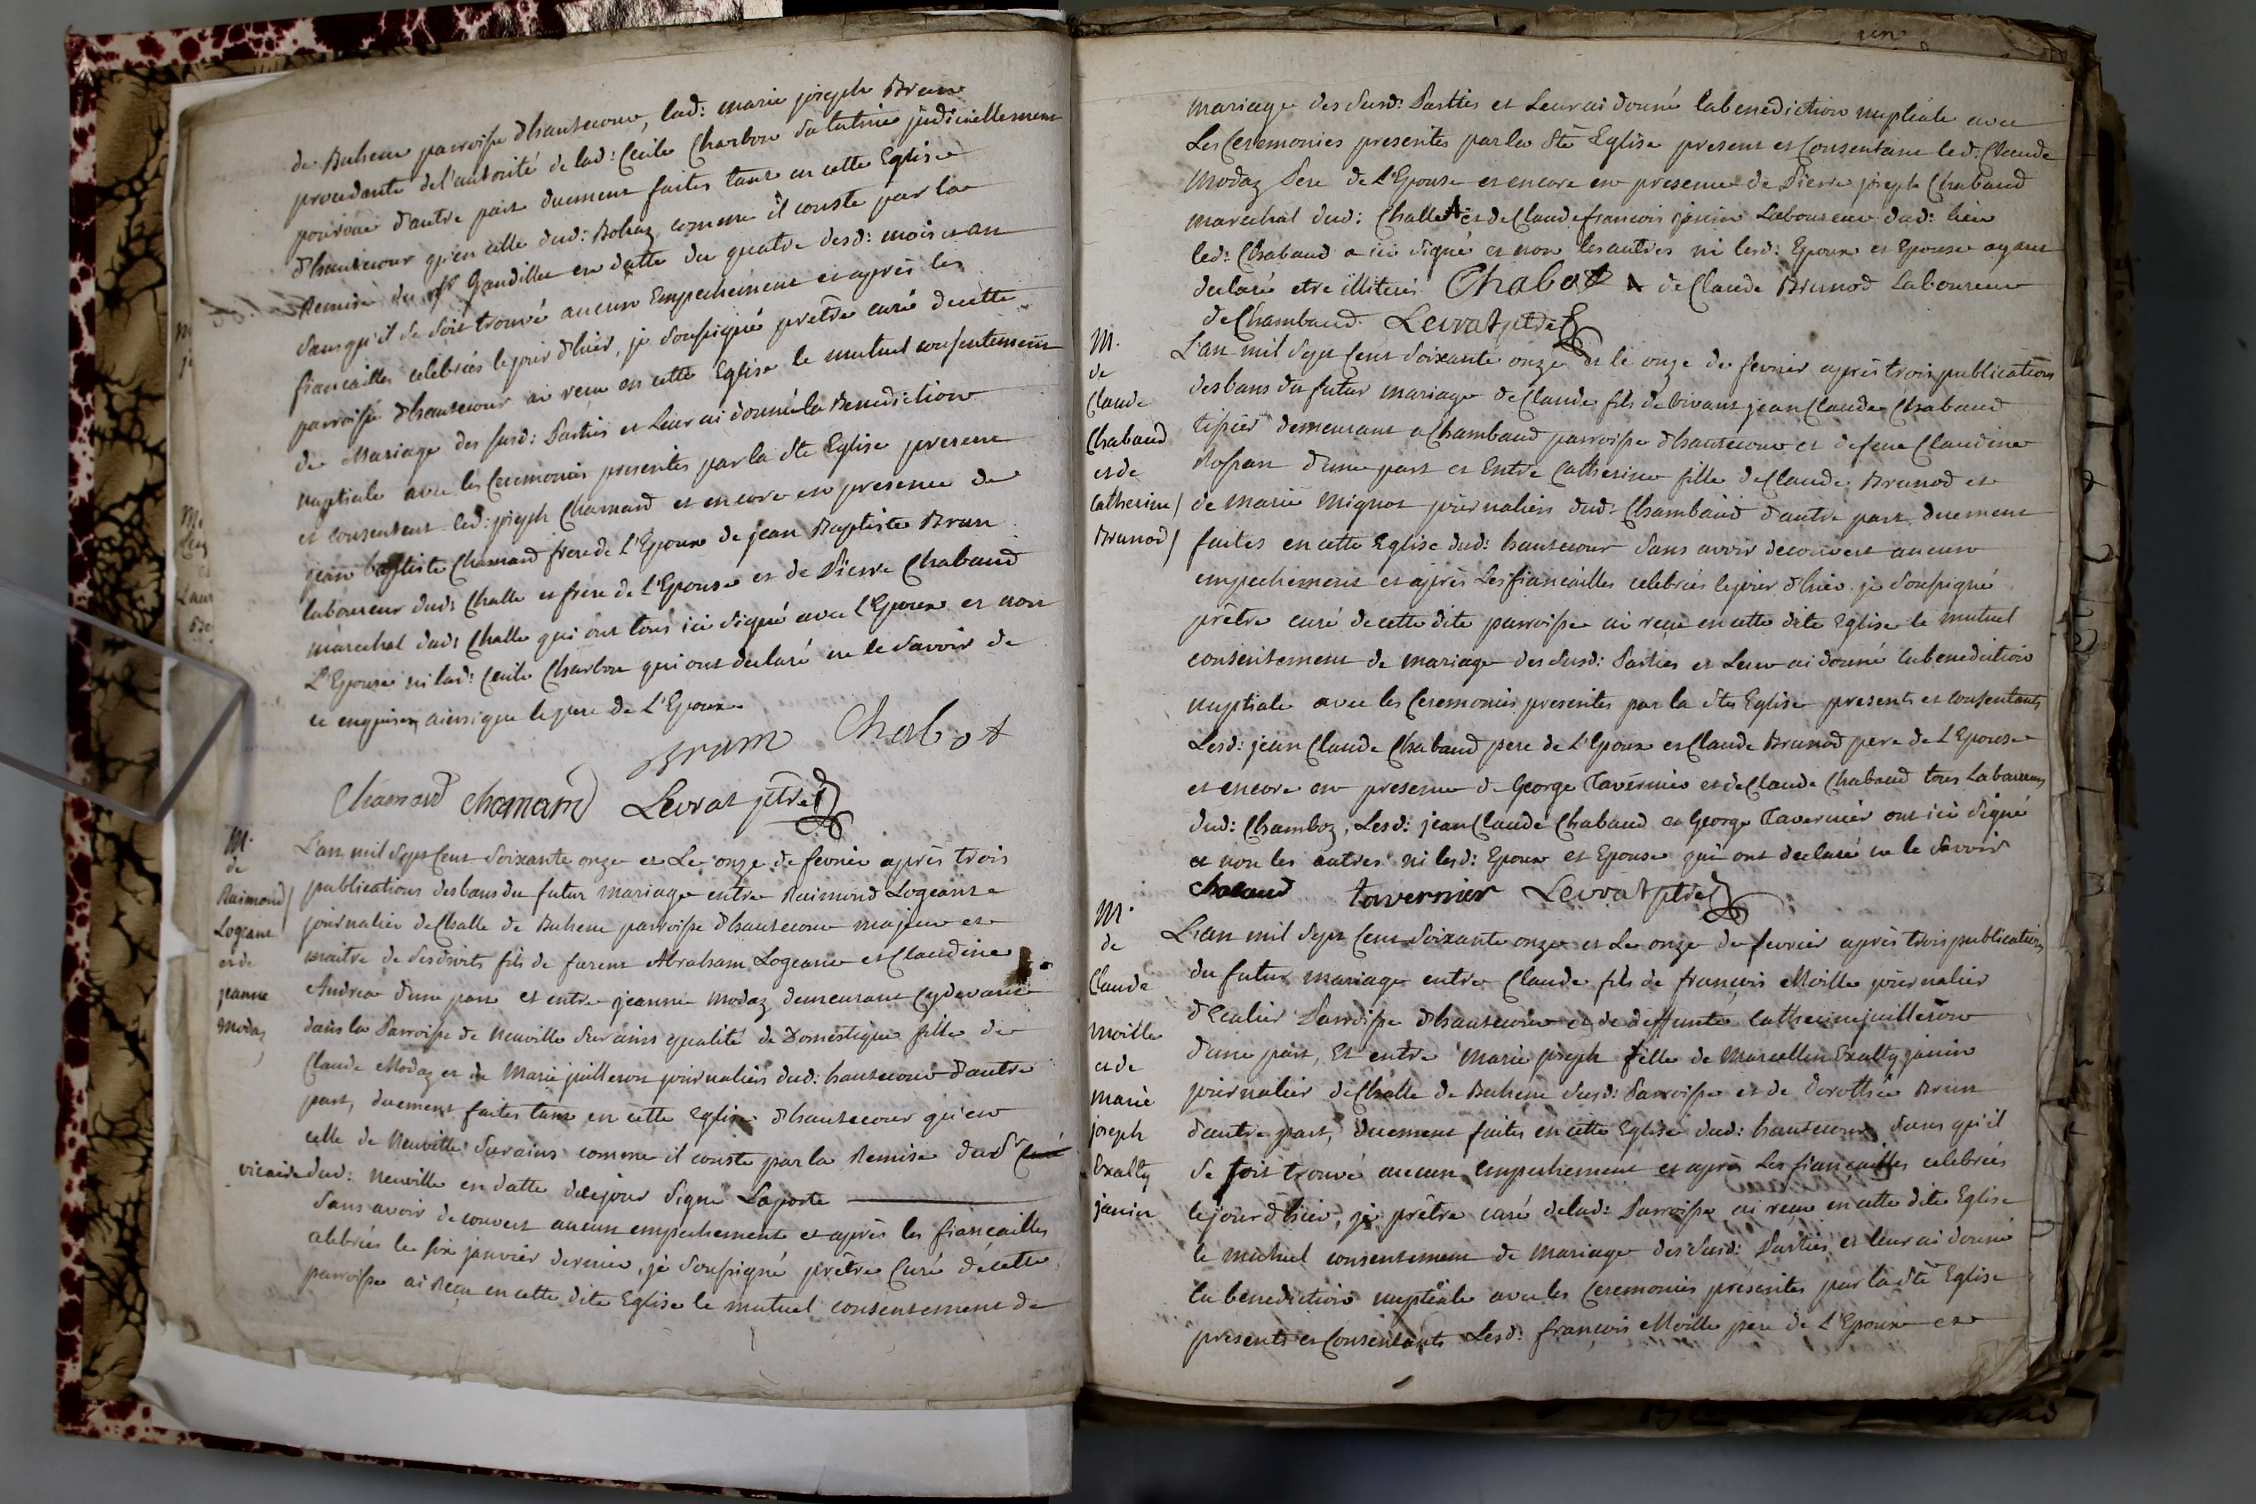 de Buhenc parroisse d'hautecour, lad: marie joseph Brun
procedante de l'autorité de lad: Cecile Charbon sa tutrice judiciellement
pourvüe d'autre part duement faites tant en cette Eglise
d'hautecour qu'en celle dud: Bohaz comme il conste par la
Remise du sr Gaudillet en datte du quatre desd: mois et an
sans qu'il se soit trouvé aucun Empechement et après les
fiancailles celebrées le jour d'hier, je soussigné prêtre curé de cette
parroisse d'hautecour ai reçu en cette Eglise le mutuel consentement
de Mariage des susd: Parties et Leur ai donné la Benediction
nuptiale avec les Ceremonies prescrites par la ste Eglise present
et consentent led: joseph Chamard et encore en presence de
jean baptiste Chamard frere de L'Epoux de jean Baptiste Brun
laboureur dud: Challe et frere de l'Epouse et de Pierre Chabaud
marechal dud: Challe qui ont tous ici signé avec l'Epoux et non
L'Epouse ni lad: Cecile Charbon qui ont declaré ne le savoir de
ce enquises, ainsi que le pere de L'Epoux
Brun Chabot
Chamard Chamard Levrat ptre
M.
de
Raimond
Logeant
et de
jeanne
Modaz
L'an mil sept cent soixante onze et Le onze de fevrier après trois
publications des bans du futur mariage entre Raimond Logeant
journalier de Challe de Buhenc parroisse d'hautecour majeur et
maitre de ses droits fils de furent Abraham Logeant et Claudine
Andrea d'une part et entre jeanne modaz demeurant Cydevant
dans la Parroisse de Neuville sur ains qualité de Domestique fille de
Claude Modaz et de Marie juilleron journaliers dud: hautecour d'autre
part, duement faites tant en cette eglise d'hautecour qu'en
celle de Neuville sur ains comme il conste par la Remise dud Sr Curé
vicaire dud: Neuville en datte de ce jour signé Laporte
sans avoir decouvert aucun empechement et après les fiancailles
celebrées le six janvier dernier, je soussigné prêtre Curé de cette
parroisse ai Reçu en cette dite Eglise le mutuel consentement de
mariage des susd: Parties et Leur ai donné la benediction nuptiale avec
Les Ceremonies prescrites par la Ste Eglise present et Consentant led: Claude
Modaz Pere de L'Epouse et encore en presence de Pierre joseph Chabaud
marechal dud: Challe et de Claude francois janin Laboureur dud: lieu
led: Chabaud a ici signé et non les autres ni lesd: Epoux et Epouse ayant
declaré etre illiterés Chabot de Claude Brunod Laboureur
de Chambaud. Levrat ptre
M.
de
Claude
Chabaud
et de
Catherine
Brunod
L'an mil sept Cent soixante onze et le onze de fevrier après trois publications
des bans du futur mariage de Claude fils de vivant jean Claude Chabaud
tissier demeurant a Chambaud parroisse d'hautecour et de feue Claudine
d'une part et Entre Catherine fille de Claude Brunod et
de marie mignot journaliers dud: Chambaud d'autre part duement
faites en cette Eglise dud: hautecour sans avoir decouvert aucun
empechement et après Les fiancailles celebrées le jour d'hier je soussigné
prêtre curé de cette dite parroisse ai reçu en cette dite Eglise le mutuel
consentement de mariage des susd: Parties et Leur ai donné la benediction
nuptiale avec les Ceremonies prescrites par la ste Eglise presents et consentants
Lesd: jean Claude Chabaud pere de L'Epoux et Claude Brunod pere de L'Epouse
et encore en presence de George Tavernier et de Claude Chabaud tous Laboureurs
dud: Chamboz, Lesd: jean Claude Chabaud et George Tavernier ont ici signé
et non les autres ni lesd: Epoux et Epouse qui ont declaré ne le savoir
Chabaud tavernier Levrat ptre
M.
de
Claude
Moille
et de
Marie
joseph
Exalty
janin
L'an mil sept Cent soixante onze et Le onze de fevrier après trois publications
du futur mariage entre Claude fils de françois Moille journalier
d'Ecalier Parroisse d'hautecour et de deffunte Catherine juilleron
d'une part, Et entre Marie joseph fille de Marcellin Exalty janin
journalier de Challe de Buhenc susd: Parroisse et de Dorothée Brun
d'autre part, duement faites en cette Eglise dud: hautecour sans qu'il
se soit trouvé aucun empechement et après Les fiancailles celebrées
le jour d'hier, je prêtre curé delad: Parroisse ai reçu en cette dite Eglise
le mutuel consentement de mariage des susd: Parties et leur ai donné
la benediction nuptiale avec les Ceremonies prescrites par la ste Eglise
presents et Consentants Lesd: françois Moille pere de L'Epoux et